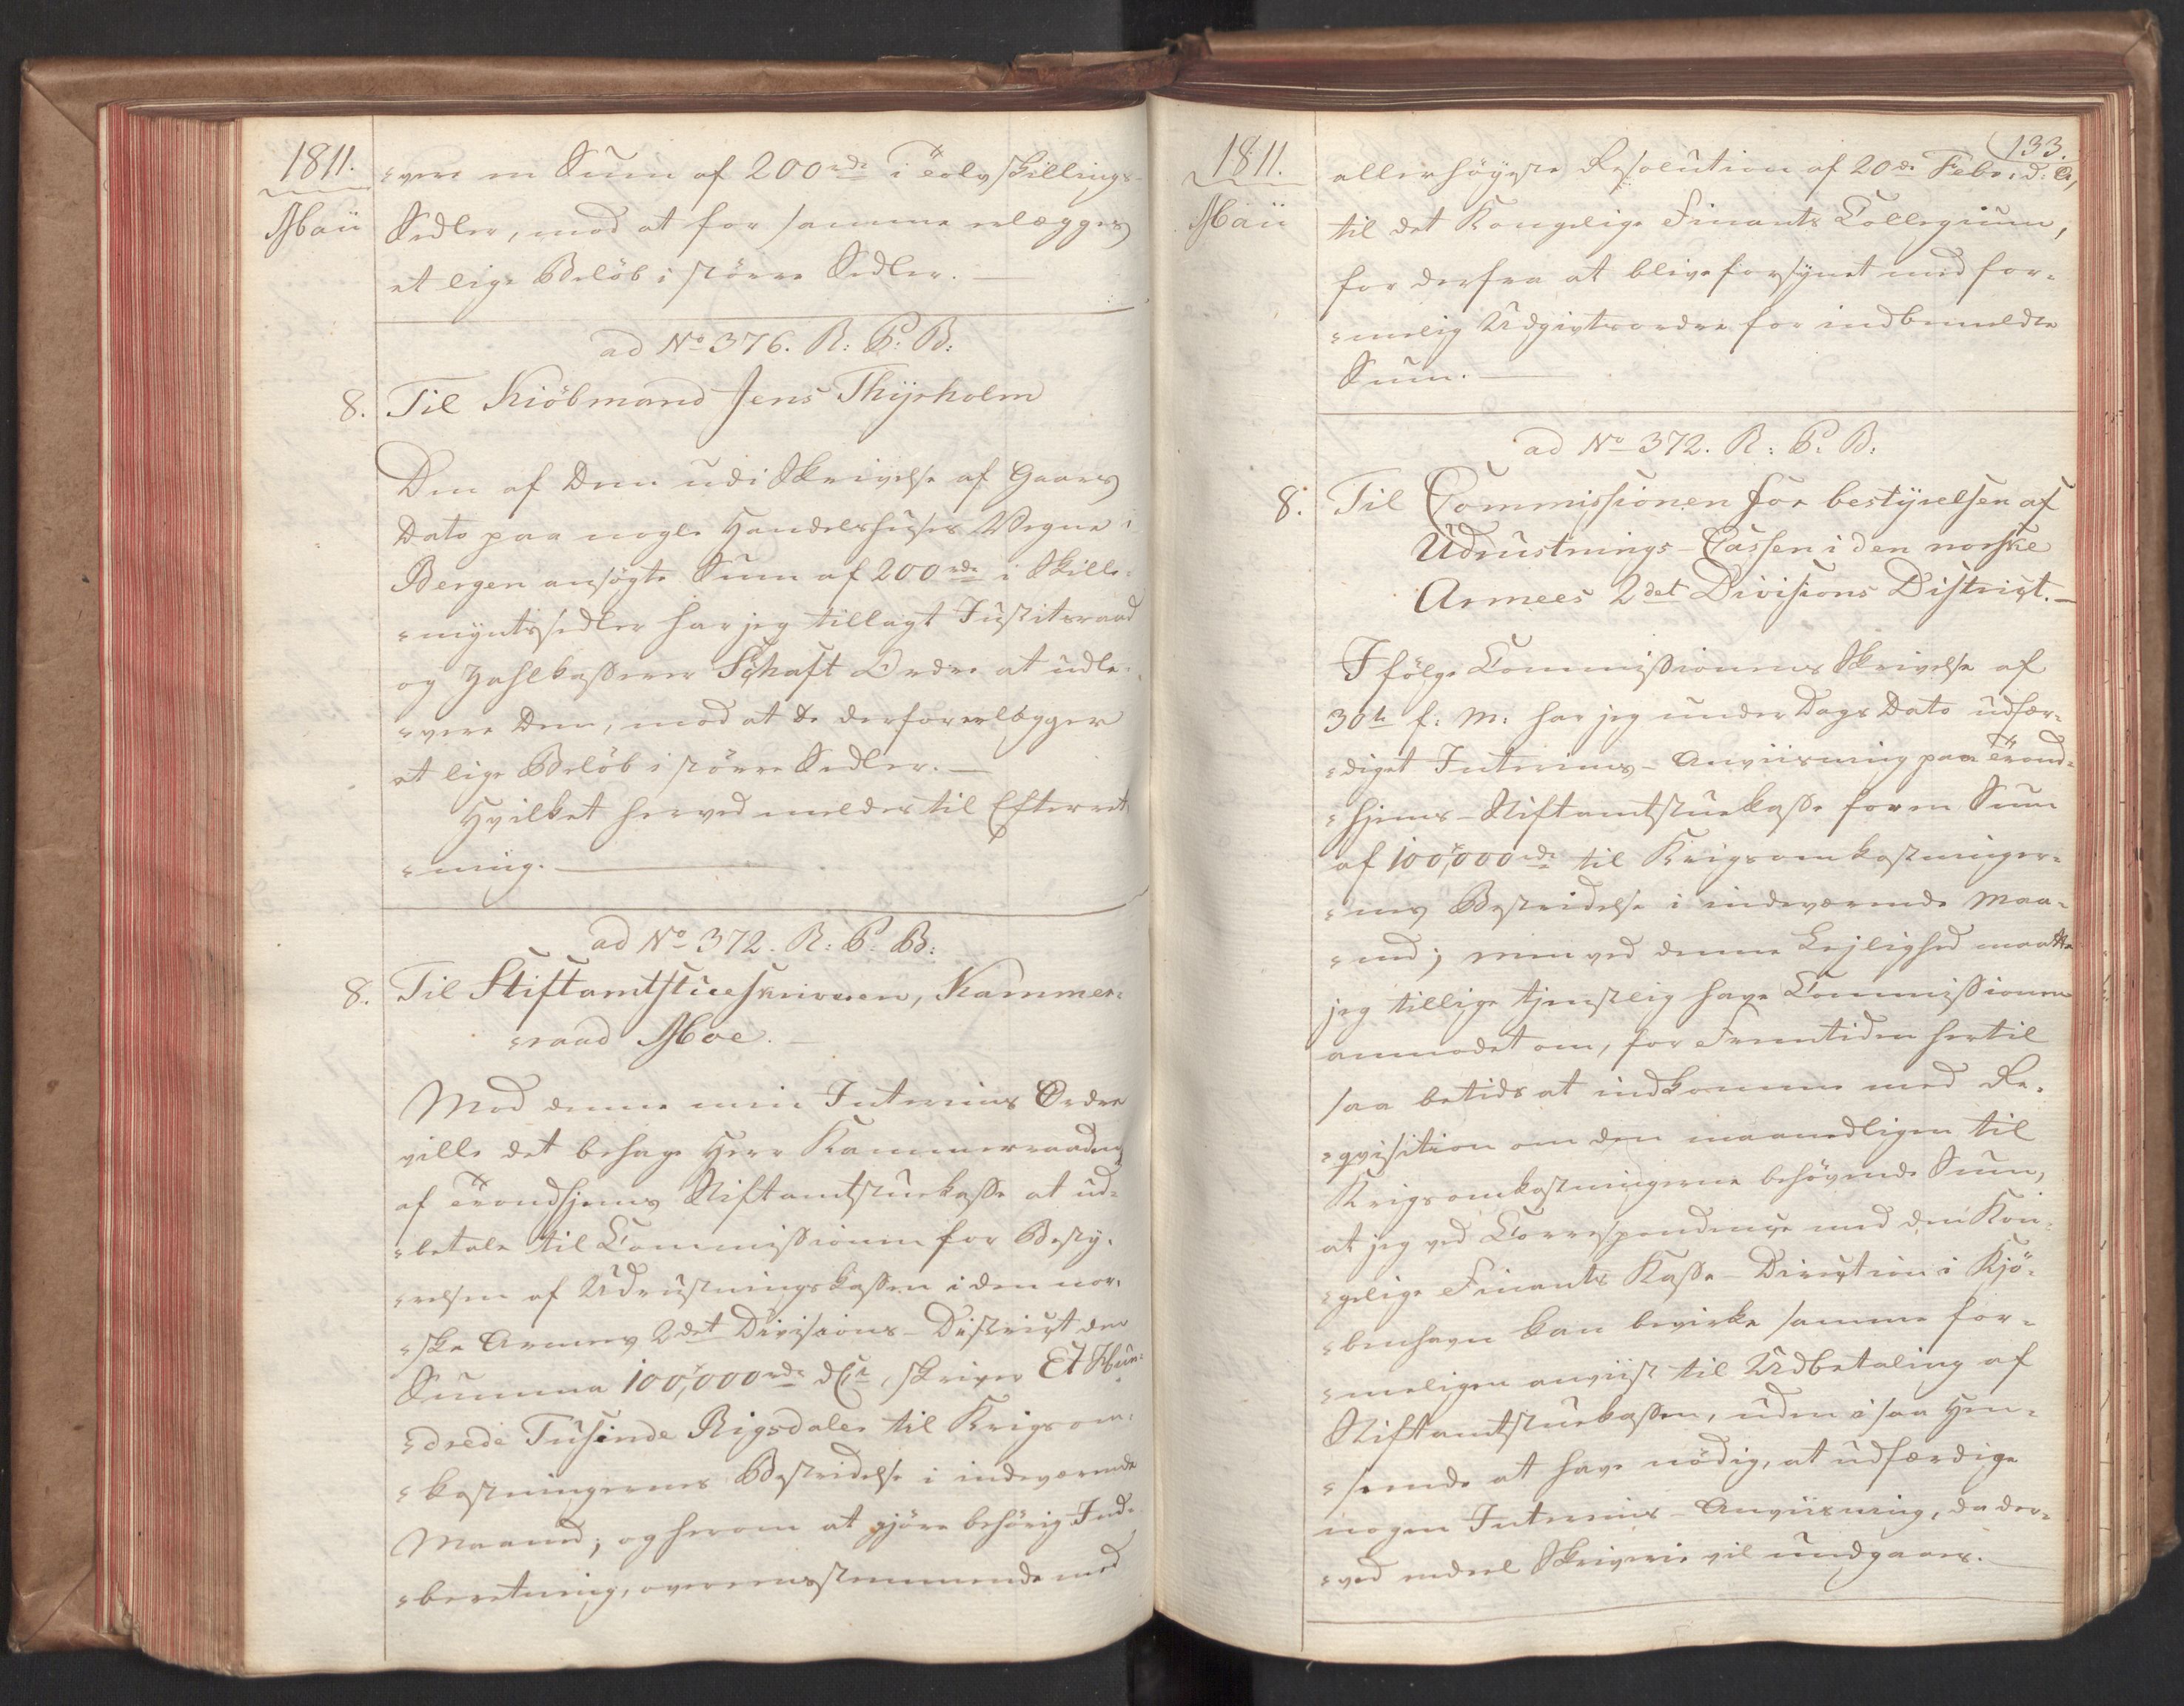 1811.
Maii
vere en Sum af 200 rdr i Tolvskillings-
Sedler, mod at for samme erlægges
et lige Beløb i større Sedler.
ad No 376. R: P: B:
8. Til Kiöbmand Jens Thyrholm
Den af Dem udi Skrivelse af Gaars
Dato paa nogle Handelshuses Vegne i
Bergen ansøgte Sum af 200 rdr i Skille-
myntssedler har jeg tillagt Justitsraad
og Zahlkasserer Schaft Ordre at udle-
vere Dem, mod at De derfor erlægger
et lige Beløb i større Sedler.
Hvilket herved meldes til Efterret-
ning.
ad No 372. R: P: B:
8. Til Stiftamtstueskriveren, Kammer-
raad Moe.
Mod denne min Interims Ordre
ville det behage Herr Kammerraaden
af Trondhjems Stiftamtstuekasse at ud-
betale til Commissionen for Besty-
relsen af Udrustningskassen i den nor-
ske Armees 2det Divisions-District den
Summa 100,000 rdr dCt, skriver Et Hun-
drede Tusinde Rigsdaler til Krigsom-
kostningernes Bestridelse i indeværende
Maaned; og herom at gjøre behørig Ind-
beretning, overensstemmende med
133.
1811.
Maii
allerhøyeste Resolution af 20de Febr: d. A,
til det Kongelige Finants Collegium,
for derfra at blive forsynet med for-
melig Udgivtsordre for indbemeldte
Sum.
ad No 372. R: P: B:
8. Til Commissionen for bestyrelsen af
Udrustnings-Cassen i den norske
Armees 2det Divisions District.
Ifølge Commissionens Skrivelse af
30te f: M: har jeg under Dags Dato udfær-
diget Interims-Anviisning paa Trond-
hjems-Stiftamtstuekasse for en Sum
af 100,000 rdr til Krigsomkostninger-
nes Bestridelse i indeværende Maa-
ned; men ved denne Lejlighed maatte
jeg tillige tjenstlig have Commissionen
anmodet om, for Fremtiden hertil
saa betids at indkomme med Re-
qvisition om den maanedligen til
Krigsomkostningerne behøvende Sum,
at jeg ved Correspondence med den Kon-
gelige Finants Kasse-Direction i Kjö-
benhavn kan bevirke samme for-
meligen anviist til Udbetaling af
Stiftamtstuekassen, uden i saa Hen-
seende at have nödig, at udfærdige
nogen Interims-Anviisning, da der-
ved endeel Skriverie vil undgaaes.